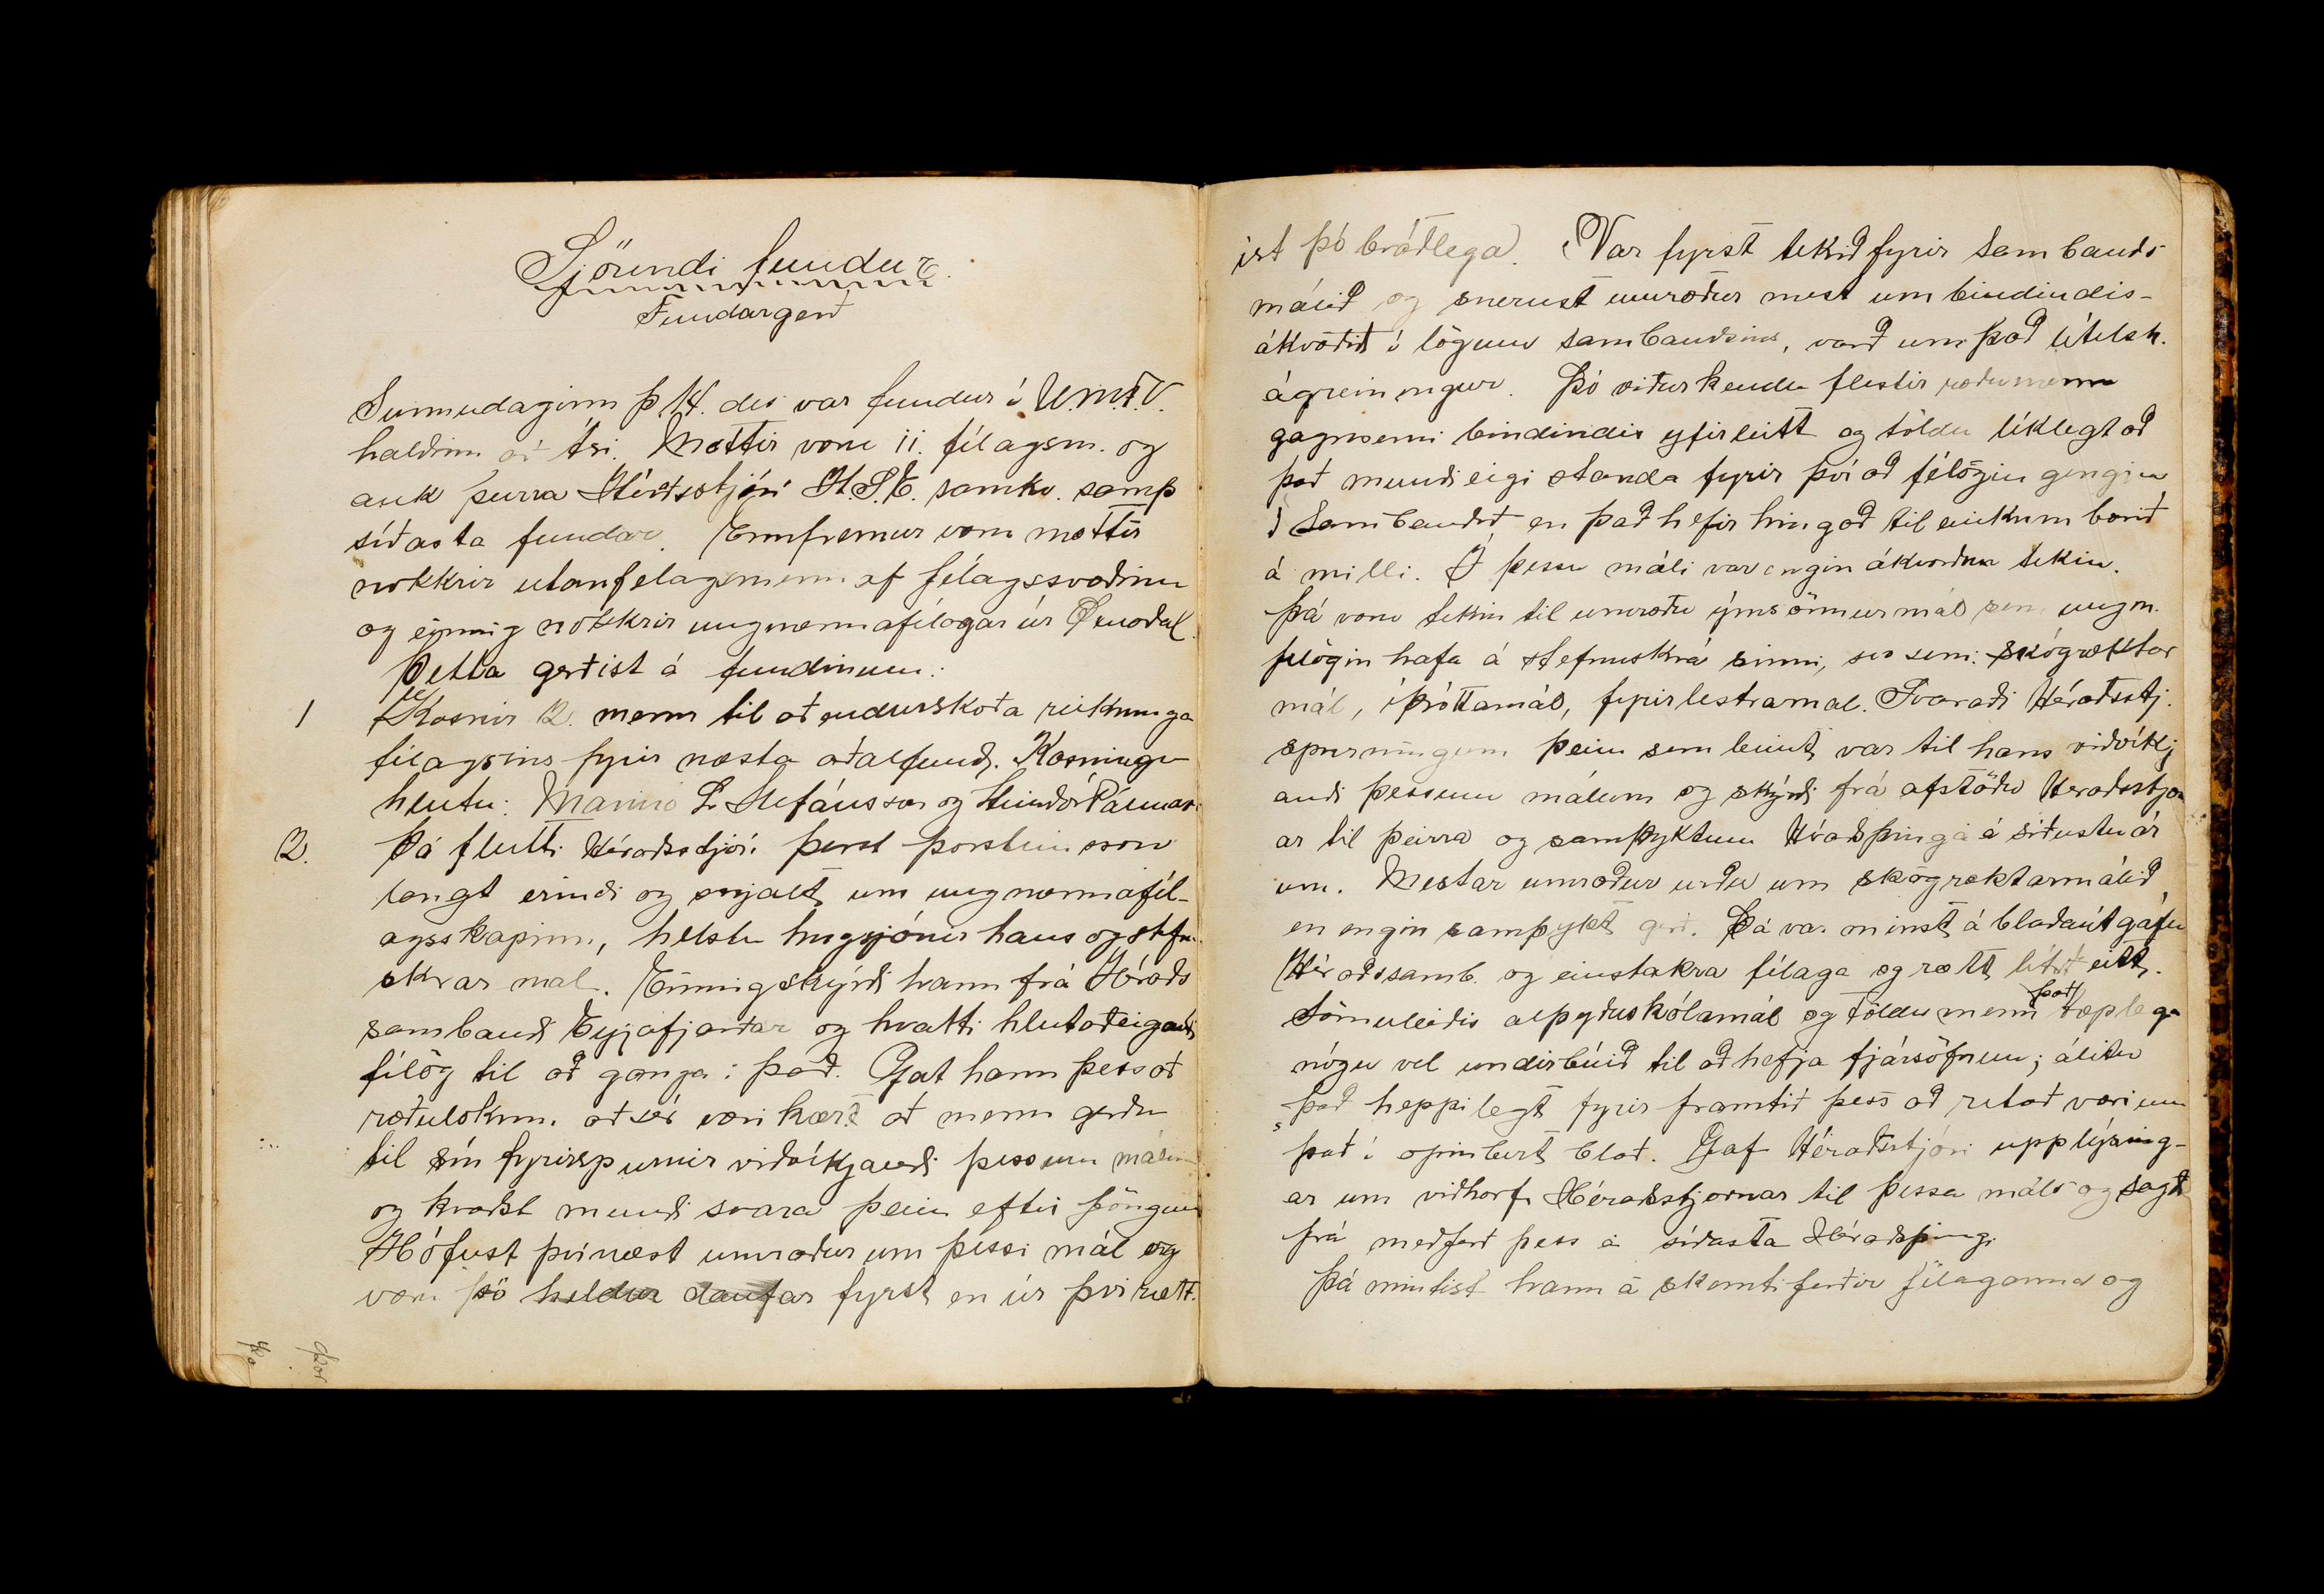 Sjöundi fundur.
Fundargerð
Sunnudaginn þ. 14. des var fundur í U.M.F.V.
haldinn að Ási. Mættir voru 11. félagsm. og
auk þeirra Héraðsstjóri H.S.E. samkv. samþ
síðasta fundar. Ennfremur voru mættir
nokkrir utanfélagsmenn af félagssvæðinu
og einnig nokkrir ungmennafélagar úr Öxnadal.
Þetta gerðist á fundinum:
1 Kosnir 2. menn til að endurskoða reikninga
félagsins fyrir næsta aðalfund. Kosningu
hlutu: Marinó L Stefánsson og Steindór Pálmas.
2. Þá flutti Héraðsstjóri Þorst Þorsteinsson
langt erindi og snjalt um ungmennafél-
agsskapinn, helstu hugsjónir hans og stefnu
skrár mál. Einnig skýrði hann frá Héraðs
sambandi Eyjafjarðar og hvatti hlutaðeigandi
félög til að ganga í það. Gat hann þess að
ræðulokum. að sér væri kært að menn gerðu
til sín fyrirspurnir viðvíkjandi þessum málum
og kvaðst mundi svara þeim eftir föngum
Hófust þvínæst umræður um þessi mál og
voru þó heldur daufar fyrst en úr því rætt-
ist þó bráðlega. Var fyrst tekið fyrir sambands
málið og snerust umræður mest um bindindis-
ákvæðið í lögum sambandsins, varð um það lítelsh.
ágreiningur. Þó viðurkendu flestir ræðumenn
gagnsemi bindindis yfirleitt og töldu líklegt að
það mundi eigi standa fyrir því að félögin gengju
í Sambandið en það hefir hingað til einkum borið
á milli. Í þessu máli var engin ákvörðun tekin.
Þá voru tekin til umræðu ýms önnur mál sem ungm.
félögin hafa á stefnuskrá sinni, svo sem: skógræktar
mál, íþróttamál, fyrirlestramál. Svaraði Héraðsstj.
spurningum þeim sem beint var til hans viðvíkj
andi þessum málum og skýrði frá afstöðu Héraðsstjórn
ar til þeirra og samþyktum Héraðsþinga á síðustu ár
um. Mestar umræður urðu um skógræktarmálið
en engin samþykt gerð. Þá var minst á blaðaútgáfu
Héraðssamb. og einstakra félaga og rætt lítið eitt.
Sömuleiðis alþýðuskólamál og töldu menn það tæplega
nógu vel undirbúið til að hefja fjársöfnun; álitu
það heppilegt fyrir framtíð þess að ritað væri um
það í opinbert blað. Gaf Héraðsstjóri upplýsing-
ar um viðhorf Héraðsstjórnar til þessa máls og sagði
frá meðferð þess á síðasta Héraðsþingi
Þá mintist hann á skemtiferðir félaganna og